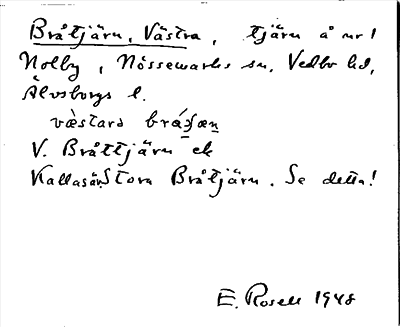 Bråtjärn, Västra, tjärn å nr 1
Nolby, Nössemarks sn, Vedbo hd,
Älvsborgs l.
væ̀stara brátʃæn
V. Bråttjärn ek
Kallasär Stora Bråtjärn. Se detta!
E. Rosell 1948